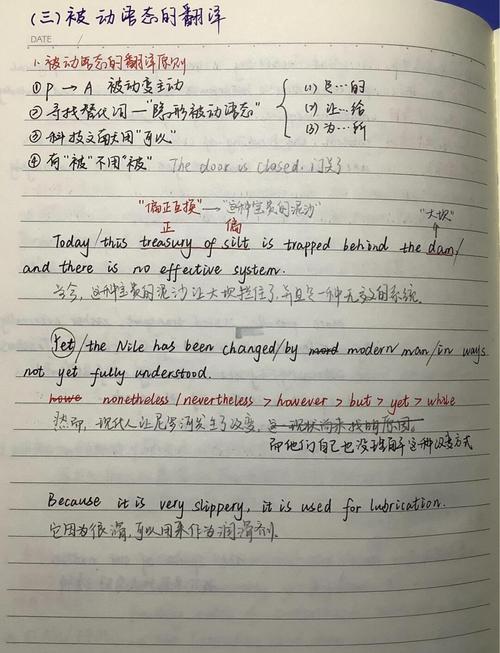 (三) 被动语态的翻译
DATE
1. 被动语态的翻译原则
① P → A 被动变主动
② 寻找替代词—"隐形被动语态"
③ 科技文献用"可以"
④ 有"被"不用"被" The door is closed. 门关了
(1) 是…的
(2) 让…给
(3) 为…所
"偏正互换" → "这种宝贵的泥沙" "大坝"
正 偏
Today/this treasury of silt is trapped behind the dam/
and there is no effective system.
当今, 这种宝贵的泥沙让大坝拦住了, 并且是一种无效的系统.
Yet/the Nile has been changed/by mord modern man/in ways
not yet fully understood.
howe nonetheless/nevertheless > however > but > yet > while
然而, 现代人让尼罗河发生了改变, 这一现状尚未找明原因.
而他们自己也没理解这种改变方式
Because it is very slippery, it is used for lubrication.
它因为很滑, 可以用来作为润滑剂.